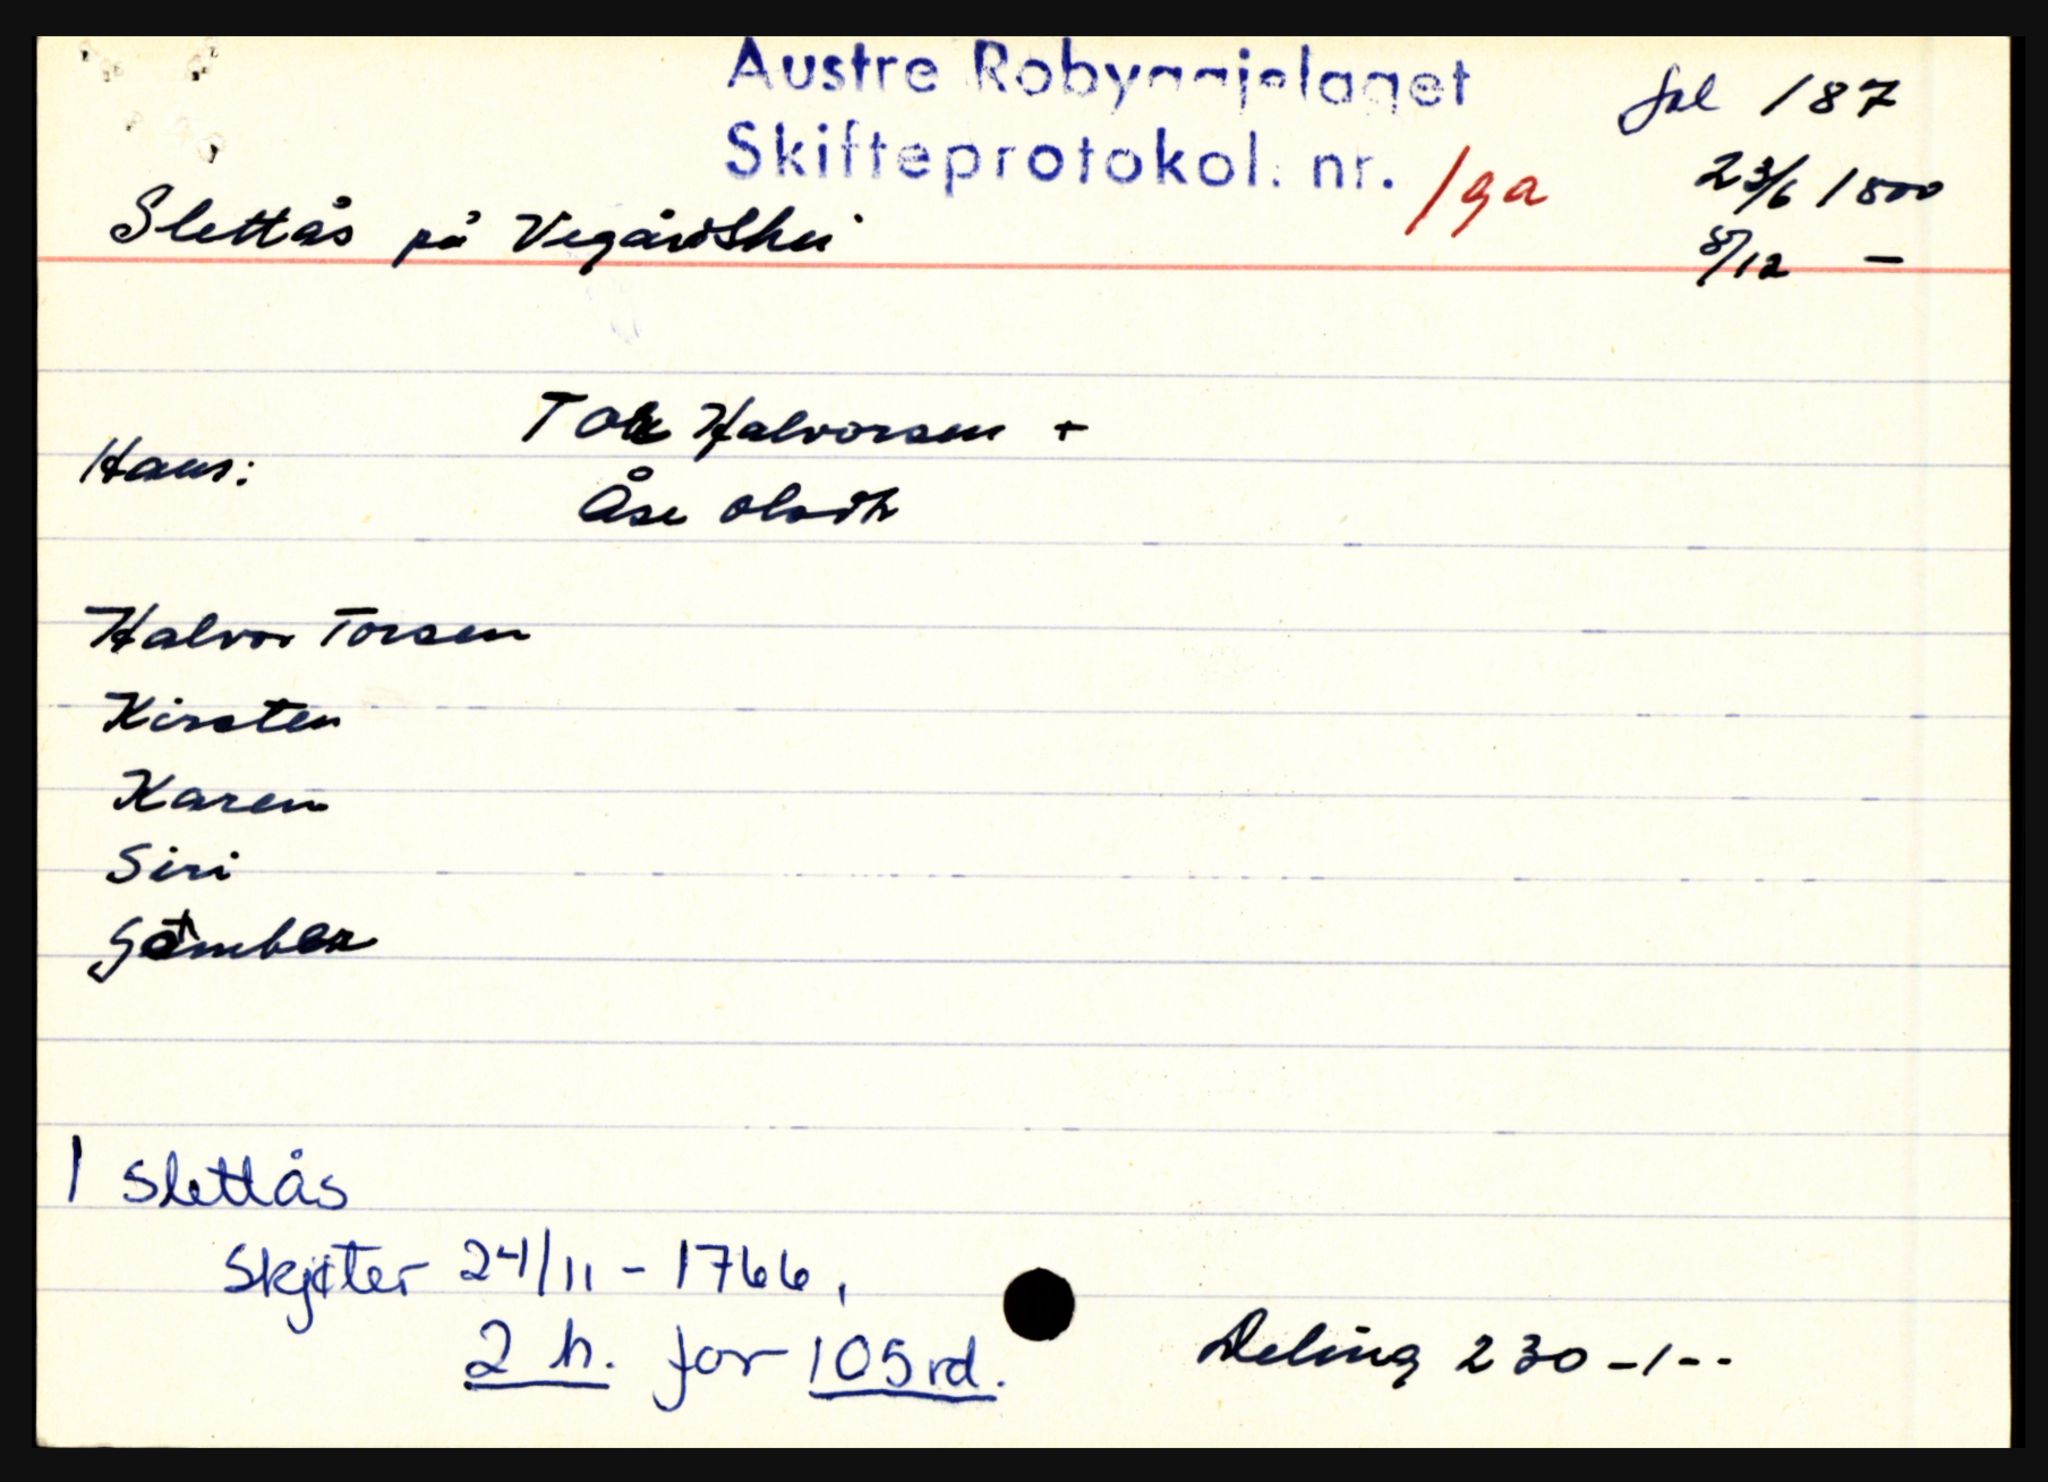 Austre Robyggjelaget
fol 187
Skifteprotokol. nr. 19a
23/6 1800
Slettås på Vegårdshei
8/12 —
Tor Halvorsen +
Hans:
Åse Olsdtr
Halvor Torsen
Kirsten
Karen
Siri
Gumber
1 Slettås
Skjøter 24/11 - 1766,
2 h. for 105 rd.
Deling 230 - 1 - -